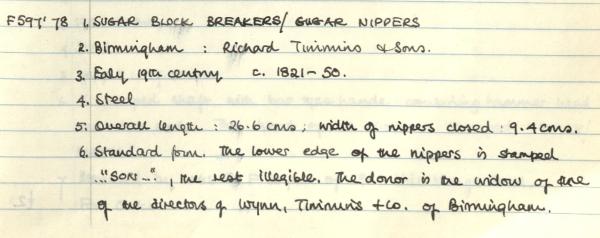 F597'78 1. SUGAR BLOCK BREAKERS/ SUGAR NIPPERS
2. Birmingham : Richard Timmins & Sons.
3. Early 19th century c. 1821-50.
4. Steel
5. Overall length : 26.6 cms ; width of nippers closed : 9.4 cms.
6. Standard form. The lower edge of the nippers is stamped
..."SON...", the rest illegible. The donor is the widow of one
of the directors of Wynn, Timmins + Co. of Birmingham.